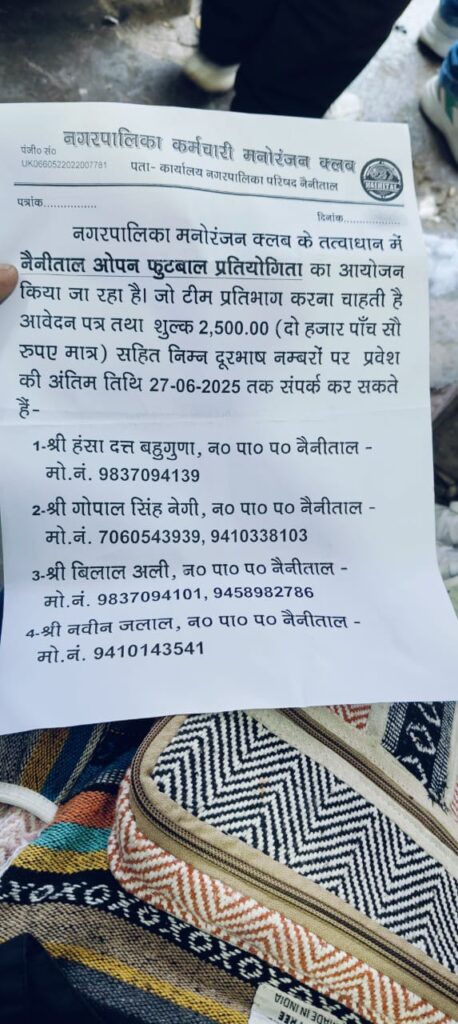 पंजी० सं० नगरपालिका कर्मचारी मनोरंजन क्लब
UK0660522022007781 पता- कार्यालय नगरपालिका परिषद नैनीताल
NAINITAL
पत्रांक...............
दिनांक..................
नगरपालिका मनोरंजन क्लब के तत्वाधान में
नैनीताल ओपन फुटबाल प्रतियोगिता का आयोजन
किया जा रहा है। जो टीम प्रतिभाग करना चाहती है
आवेदन पत्र तथा शुल्क 2,500.00 (दो हजार पाँच सौ
रुपए मात्र) सहित निम्न दूरभाष नम्बरों पर प्रवेश
की अंतिम तिथि 27-06-2025 तक संपर्क कर सकते
हैं-
1-श्री हंसा दत्त बहुगुणा, न० पा० प० नैनीताल -
मो.नं. 9837094139
2-श्री गोपाल सिंह नेगी, न० पा० प० नैनीताल -
मो.नं. 7060543939, 9410338103
3-श्री बिलाल अली, न० पा० प० नैनीताल -
मो.नं. 9837094101, 9458982786
4-श्री नवीन जलाल, न० पा० प० नैनीताल -
मो.नं. 9410143541
MADE IN INDIA